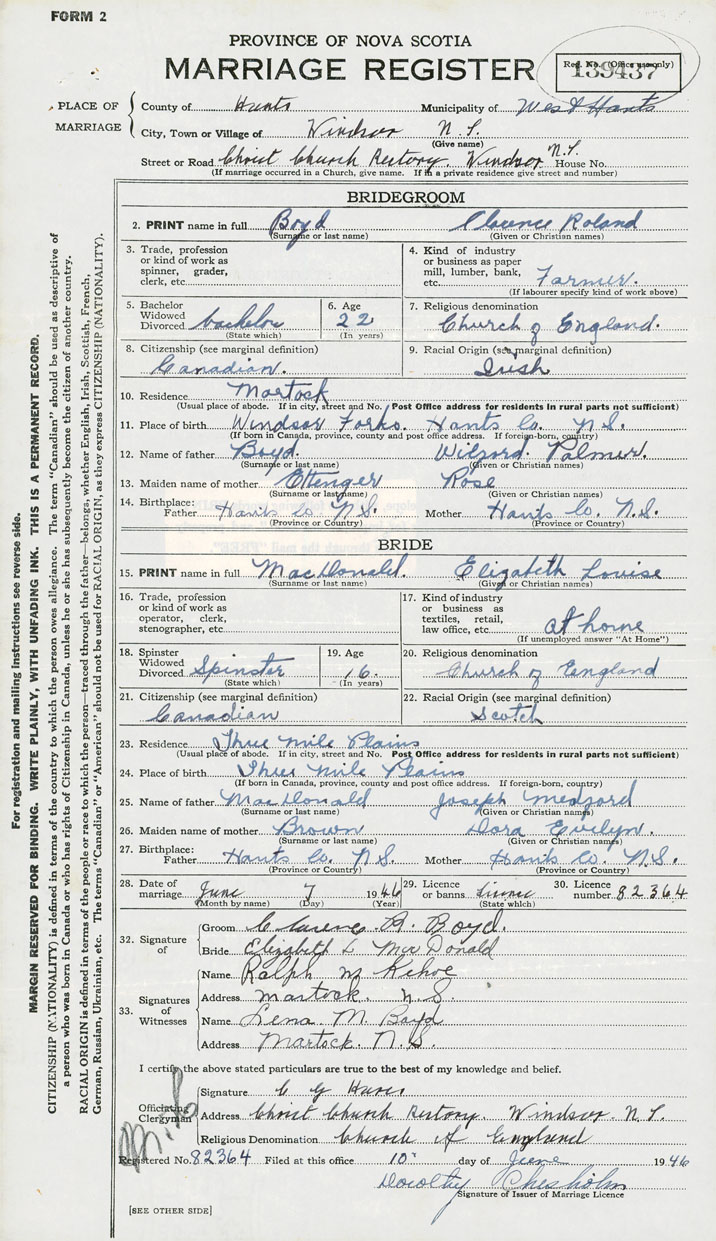 FORM 2
PROVINCE OF NOVA SCOTIA
MARRIAGE REGISTER
Reg. No. (Office use only)
139437
PLACE OF MARRIAGE
County of Hants Municipality of West Hants
City, Town or Village of Windsor N.S.
(Give name)
Street or Road Christ Church Rectory. Windsor N.S. House No.
(If marriage occurred in a Church, give name. If in a private residence give street and number)
BRIDEGROOM
2. PRINT name in full Boyd Clarence Roland
(Surname or last name) (Given or Christian names)
3. Trade, profession or kind of work as spinner, grader, clerk, etc.
4. Kind of industry or business as paper mill, lumber, bank, etc. Farmer.
(If labourer specify kind of work above)
5. Bachelor Widowed Divorced bachelor (State which)
6. Age 22 (In years)
7. Religious denomination Church of England.
8. Citizenship (see marginal definition) Canadian.
9. Racial Origin (see marginal definition) Irish
10. Residence Martock
(Usual place of abode. If in city, street and No. Post Office address for residents in rural parts not sufficient)
11. Place of birth Windsor Forks. Hants Co. N.S.
(If born in Canada, province, county and post office address. If foreign-born, country)
12. Name of father Boyd. Wilford Palmer.
(Surname or last name) (Given or Christian names)
13. Maiden name of mother Ettenger Rose
(Surname or last name) (Given or Christian names)
14. Birthplace: Father Hants Co. N.S. Mother Hants Co. N.S.
(Province or Country) (Province or Country)
BRIDE
15. PRINT name in full MacDonald. Elizabeth Louise
(Surname or last name) (Given or Christian names)
16. Trade, profession or kind of work as operator, clerk, stenographer, etc.
17. Kind of industry or business as textiles, retail, law office, etc. at home
(If unemployed answer "At Home")
18. Spinster Widowed Divorced Spinster (State which)
19. Age 16. (In years)
20. Religious denomination Church of England
21. Citizenship (see marginal definition) Canadian
22. Racial Origin (see marginal definition) Scotch
23. Residence Three Mile Plains
(Usual place of abode. If in city, street and No. Post Office address for residents in rural parts not sufficient)
24. Place of birth Three Mile Plains
(If born in Canada, province, county and post office address. If foreign-born, country)
25. Name of father MacDonald Joseph Medford
(Surname or last name) (Given or Christian names)
26. Maiden name of mother Brown Dora Evelyn.
(Surname or last name) (Given or Christian names)
27. Birthplace: Father Hants Co. N.S. Mother Hants Co. N.S.
(Province or Country) (Province or Country)
28. Date of marriage June 7 1946 29. Licence or banns License 30. Licence number 82364
(Month by name) (Day) (Year) (State which)
32. Signature of
Groom Clarence R. Boyd.
Bride Elizabeth L MacDonald
33. Signatures of Witnesses
Name Ralph M Kehoe
Address Martock. N.S.
Name Lena M. Boyd
Address Martock. N.S.
I certify the above stated particulars are true to the best of my knowledge and belief.
Officiating Clergyman
Signature C G
Address Christ Church Rectory. Windsor. N.S.
Religious Denomination Church of England
Registered No. 82364 Filed at this office 10 day of June 1946
Dorothy Chisholm
Signature of Issuer of Marriage Licence
[SEE OTHER SIDE]
For registration and mailing instructions see reverse side.
MARGIN RESERVED FOR BINDING. WRITE PLAINLY, WITH UNFADING INK. THIS IS A PERMANENT RECORD.
CITIZENSHIP (NATIONALITY) is defined in terms of the country to which the person owes allegiance. The term "Canadian" should be used as descriptive of
a person who was born in Canada or who has rights of Citizenship in Canada, unless he or she has subsequently become the citizen of another country.
RACIAL ORIGIN is defined in terms of the people or race to which the person—traced through the father—belongs, whether English, Irish, Scottish, French,
German, Russian, Ukrainian, etc. The terms "Canadian" or "American" should not be used for RACIAL ORIGIN, as they express CITIZENSHIP (NATIONALITY).